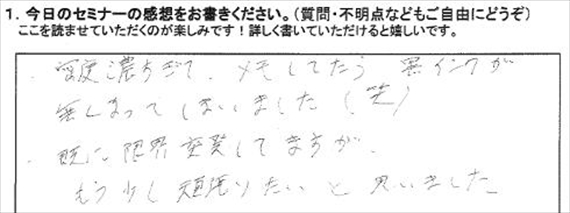 1. 今日のセミナーの感想をお書きください。(質問・不明点などもご自由にどうぞ)
ここを読ませていただくのが楽しみです！詳しく書いていただけると嬉しいです。
・密度濃すぎて、メモしてたら 黒インクが
無くなってしまいました(笑)
・既に限界突発してますが、
もう少し頑張りたいと思いました